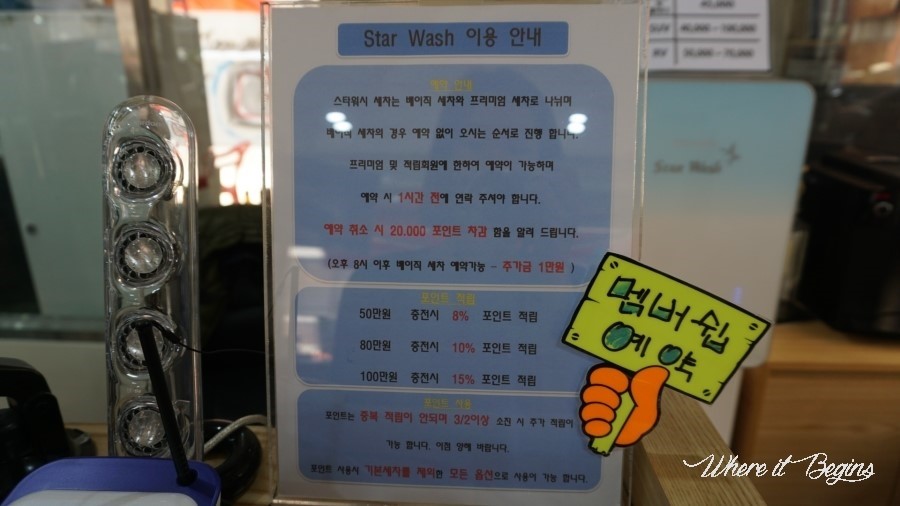 Star Wash 이용 안내
예약 안내
스타워시 세차는 베이직 세차와 프리미엄 세차로 나뉘며
베이직 세차의 경우 예약 없이 오시는 순서로 진행 합니다.
프리미엄 및 적립회원에 한하여 예약이 가능하며
예약 시 1시간 전에 연락 주셔야 합니다.
예약 취소 시 20,000 포인트 차감 함을 알려 드립니다.
(오후 8시 이후 베이직 세차 예약가능 - 추가금 1만원 )
포인트 적립
50만원 충전시 8% 포인트 적립
80만원 충전시 10% 포인트 적립
100만원 충전시 15% 포인트 적립
포인트 사용
포인트는 중복 적립이 안되며 3/2이상 소진 시 추가 적립이
가능 합니다. 이점 양해 바랍니다.
포인트 사용시 기본세차를 제외한 모든 옵션으로 사용이 가능 합니다.
멤버쉽
예약
Star Wash
Where it Begins